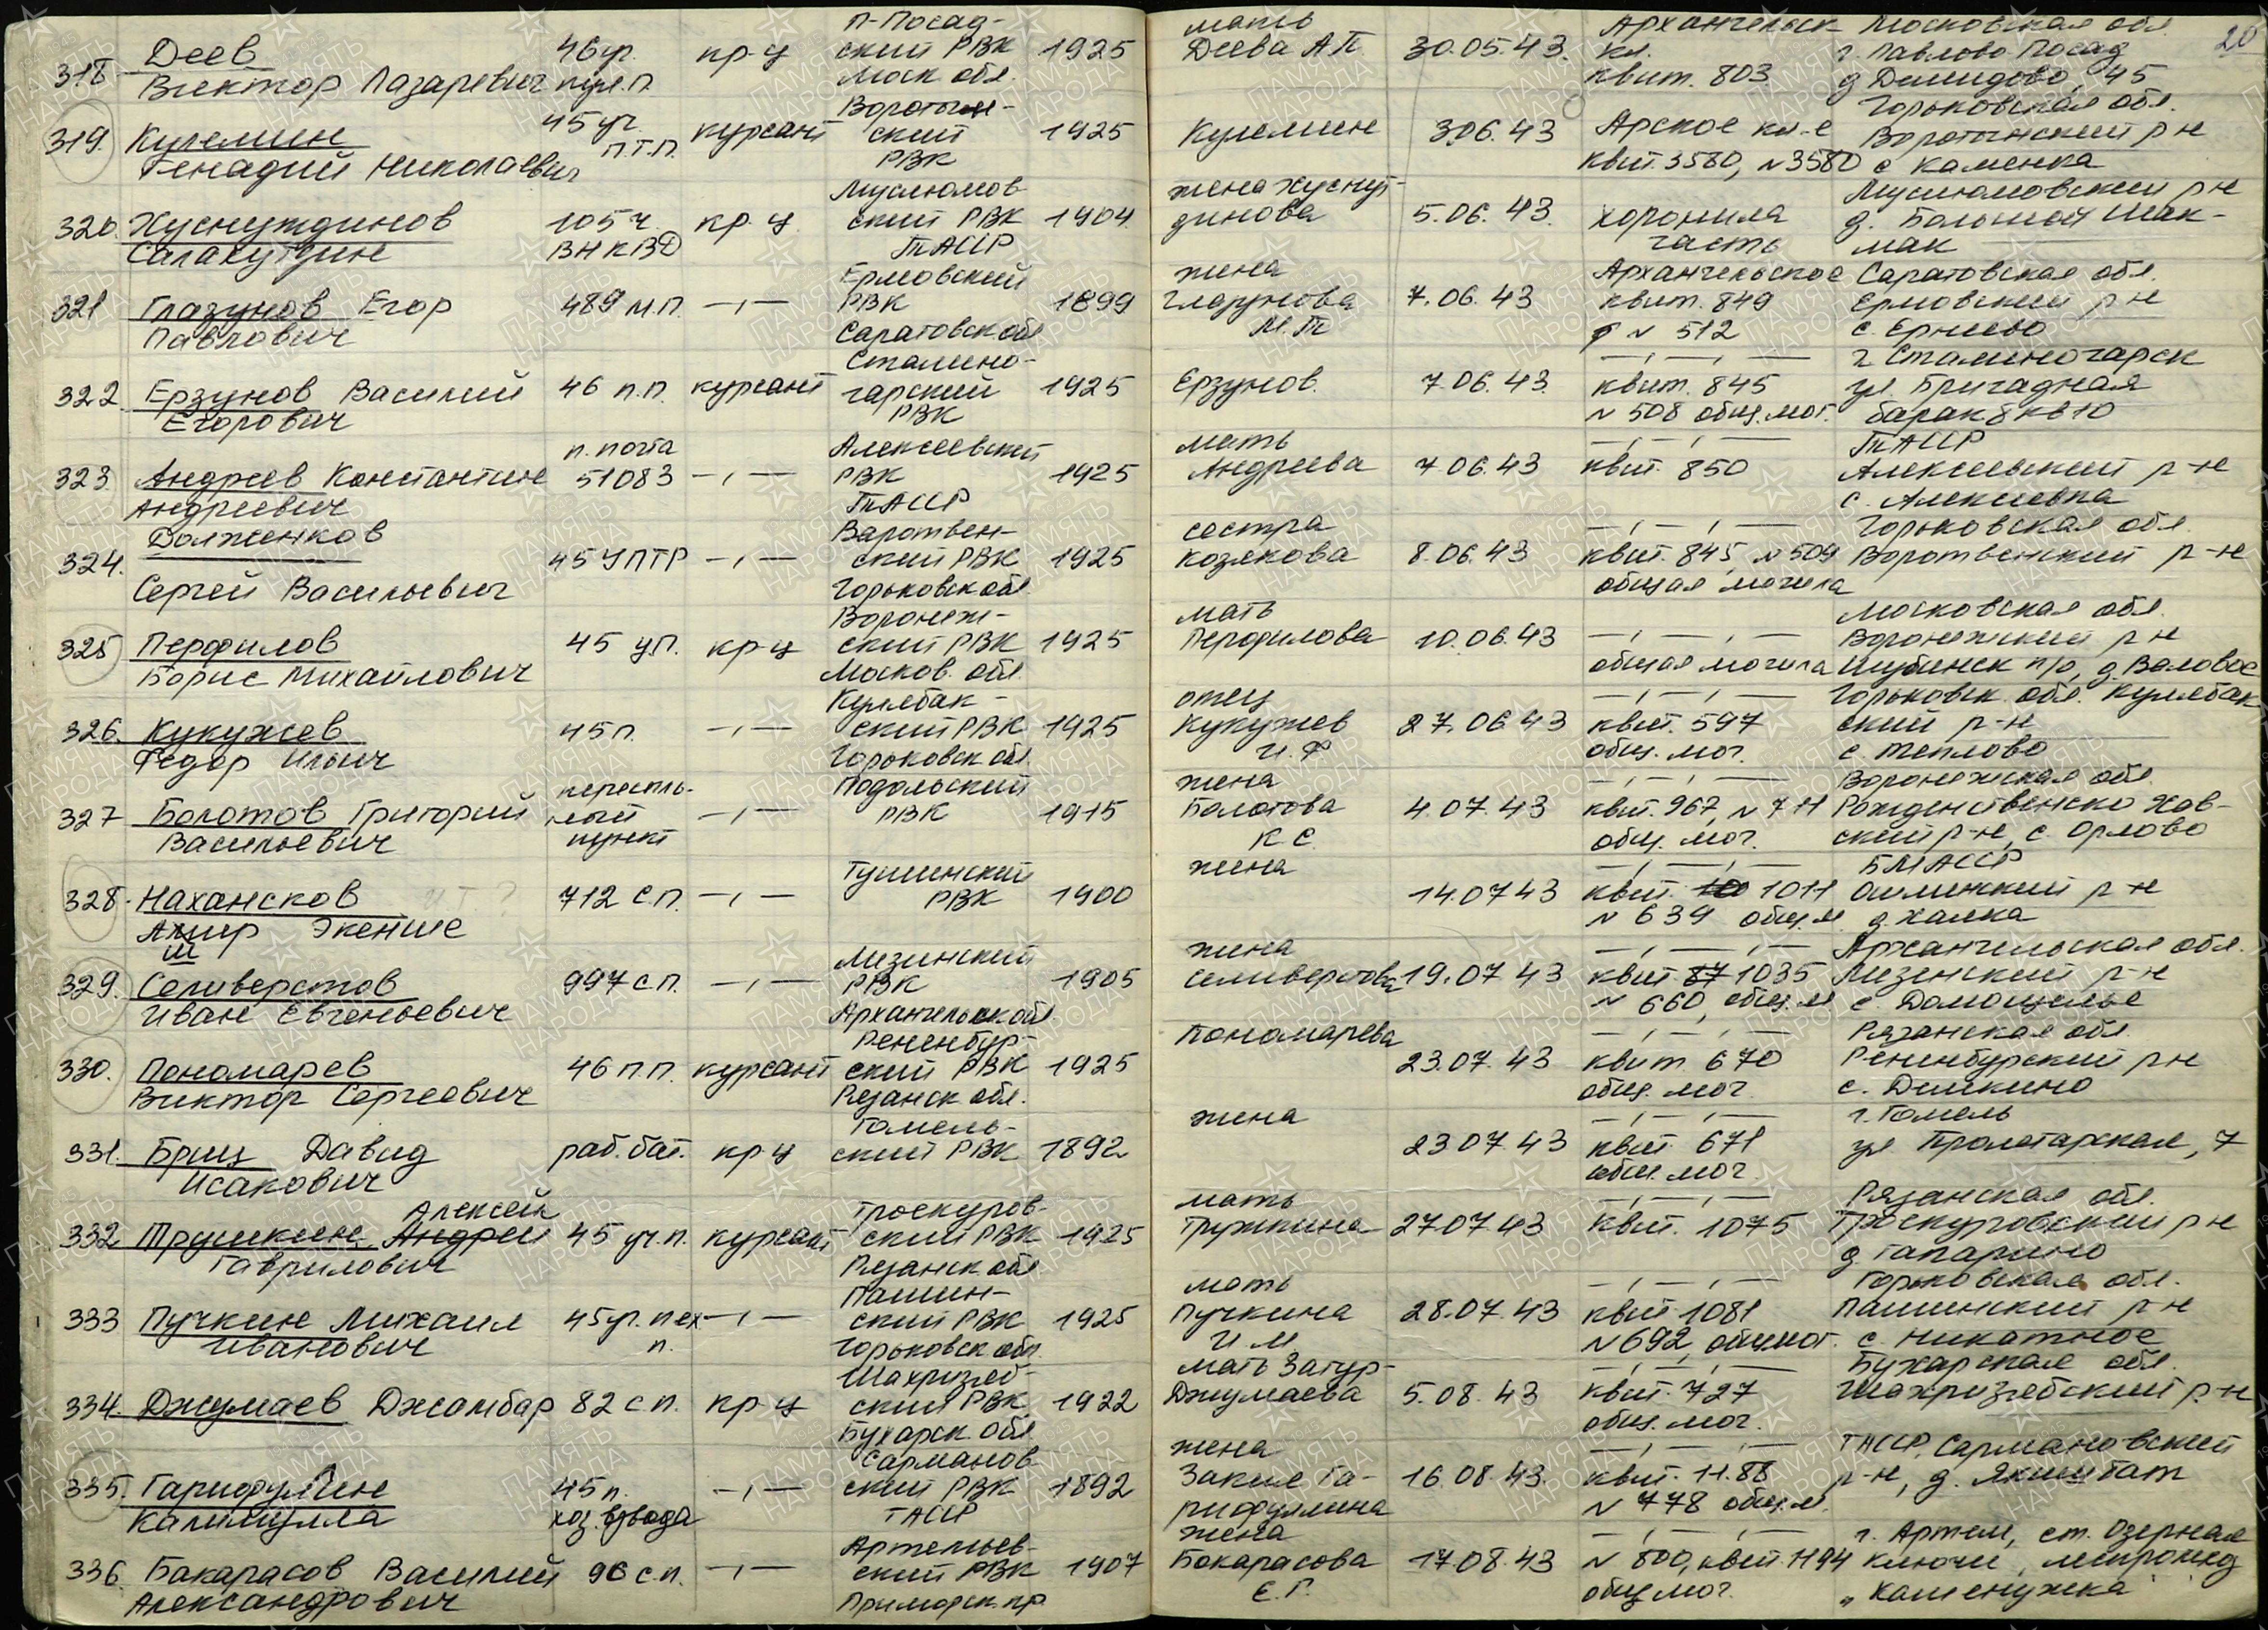 20
318 Деев Виктор Лазаревич 46 уч. пул.п. кр-ц П-Посад-ский РВК Моск обл. 1925 мать Деева А П 30.05.43. Архангельск кл. квит. 803 Московская обл. г. Павлово Посад д Демидово, 45
319. Кулемин Генадий Николаевич 45 уч. П.Т.П. курсант Воротын-ский РВК 1925 Кулемин 3.06.43 Арское кл-е квит. 3580, N 3580 Горьковская обл. Воротынский р н с Каменка
320. Хуснутдинов Салахутдин 105 ч. ВНКВД кр-ц Муслюмов-ский РВК ТАССР 1904 жена Хуснут-динова 5.06.43. хоронила часть Муслюмовский р н д. Большой Шак-мак
321 Глазунов Егор Павлович 489 м.п. —,,— РВК Саратовск обл 1899 жена Глазунова М.Т 7.06.43 Архангельское квит. 849 N 512 Саратовская обл. р н
322 Ерзунов Василий Егорович 46 п.п. курсант Сталино-гарский РВК 1925 Ерзунов. 7.06.43. —,,— квит. 845 N 508 общ. мог. г Сталиногарск ул. Бригадная барак 8 кв 10
323. Андреев Константин Андреевич п. почта 51083 —,,— Алексеевский РВК ТАССР 1925 мать Андреева 7.06.43 —,,— квит. 850 ТАССР Алексеевский р-н с. Алексеевка
324. Долженков Сергей Васильевич 45 УПТР —,,— Варотвен-ский РВК Горьковск обл 1925 сестра Козякова 8.06.43 —,,— квит. 845, N 509 общая могила Горьковская обл Воротвенский р-н
325 Перфилов Борис Михайлович 45 уп. кр-ц Воронеж-ский РВК Москов. обл. 1925 мать Перфилова 10.06.43 —,,— общая могила Московская обл. Воронежский р н п/о, д. Воловое
326. Кукужев Федор Ильич 45 п. —,,— Кулебак-ский РВК Горьковск обл. 1925 отец Кукужев И.Ф 27.06.43 —,,— квит. 597 общ. мог. Горьковск. обл. Кулебак-ский р-н с. Теплово
327 Болотов Григорий Васильевич пересыль-ный пункт —,,— Подольский РВК 1915 жена Болотова К С. 4.07.43 —,,— квит. 967, N 711 общ. мог. Воронежская обл. Рождественско Хав-ский р-н, с. Орлово
328. Нахансков Ашир Экенше 712 с.п. —,,— Тушинский РВК 1900 жена 14.07.43 —,,— квит. 1011 N 634 общ. м БМАССР р н
329. Селиверстов Иван Евгеньевич 997 с.п. —,,— Мезинский РВК Архангельск обл 1905 жена Селиверстова 19.07.43 —,,— квит. 1035 N 660, общ. м Архангельская обл. Мезенский р-н с Долощелье
330. Пономарев Виктор Сергеевич 46 п.п. курсант Рененбур-ский РВК Рязанск обл. 1925 Пономарева 23.07.43 —,,— квит 670 общ. мог. Рязанская обл. Ренинбурский р н с. Демкино
331. Бриц Давид Исакович раб. бат. кр-ц Гомель-ский РВК 1892 жена 23.07.43 —,,— квит. 671 общ. мог. г. Гомель ул. Пролетарская, 7
332 Трушкин Андрей Алексей Гаврилович 45 уч. п. курсант Троекуров-ский РВК Рязанск обл 1925 мать Тружкина 27.07.43 —,,— квит. 1075 Рязанская обл. Троекуровский р н д. Гапарино
333 Пучкин Михаил Иванович 45 уч. пех п. —,,— Пашин-ский РВК Горьковск обл. 1925 мать Пучкина И М 28.07.43 —,,— квит 1081 N 692, общ мог. Горьковская обл. Пашинский р н с. Никатное
334. Джумаев Джамбар 82 с п. кр-ц Шахризяб-ский РВК Бухарск. обл. 1922 мать Загур-Джумаева 5.08.43 —,,— квит. 727 общ. мог. Бухарская обл. Шахризябский р-н
335. Гарифулин Калимулла 45 п. хоз. взвода —,,— Сарманов-ский РВК ТАССР 1892 жена Закие Га-рифуллина 16.08.43. —,,— квит. 11.88 N 778 общ. м. ТАССР, Сармановский р-н, д.
336. Бакарасов Василий Александрович 96 с.п. —,,— Артемьев-ский РВК Приморск. кр. 1907 жена Бокарасова Е.Г. 17.08.43 —,,— N 800, квит. 1194 общ мог. г. Артем, ст. Озерная ключи